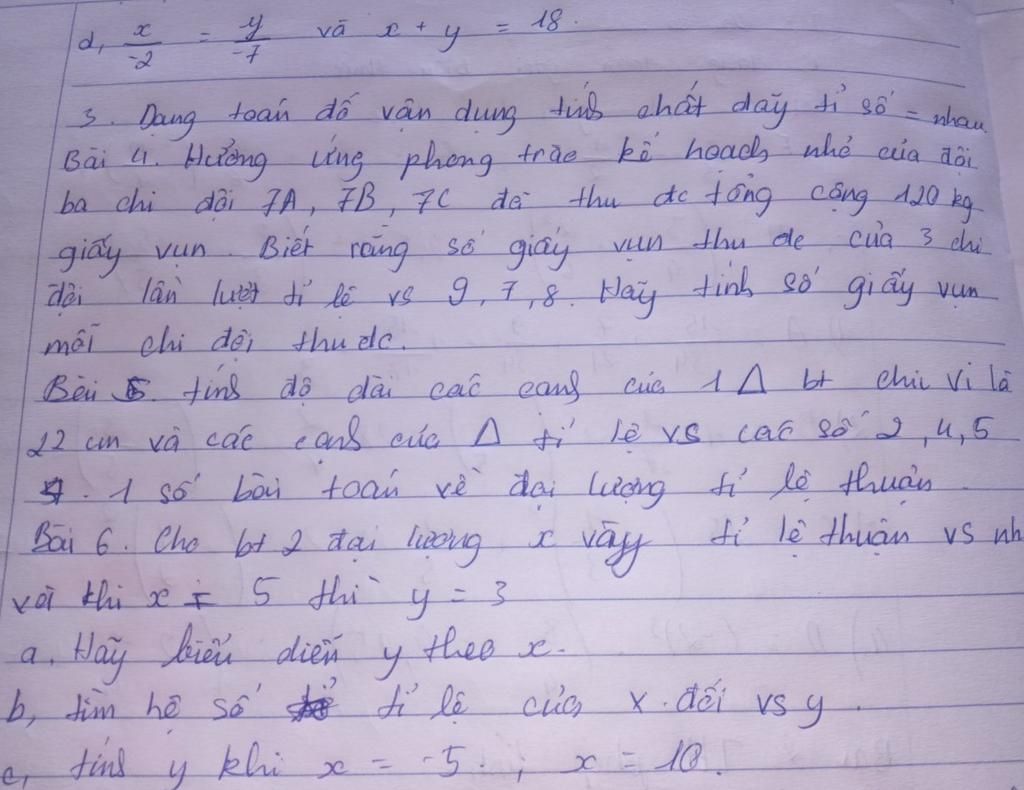 d, x/-2 = y/-7 và x + y = 18.
3. Dang toán đố vận dụng tính chất dãy tỉ số = nhau.
Bài 4. Hưởng ứng phong trào kế hoạch nhỏ của đội
ba chi đội 7A, 7B, 7C đã thu đc tổng cộng 120 kg
giấy vụn. Biết rằng số giấy vụn thu đc của 3 chi
đội lần lượt tỉ lệ vs 9, 7, 8. Hãy tính số giấy vụn
mỗi chi đội thu đc.
Bài 5. tính độ dài các cạnh của 1 Δ bt chu vi là
22 cm và các cạnh của Δ tỉ lệ vs các số 2, 4, 5
4. 1 số bài toán về đại lượng tỉ lệ thuận.
Bài 6. Cho bt 2 đại lượng x và y tỉ lệ thuận vs nh
với khi x = 5 thì y = 3
a. Hãy biểu diễn y theo x.
b, tìm hệ số tỉ lệ của x đối vs y.
c, tính y khi x = -5 ; x = 10.